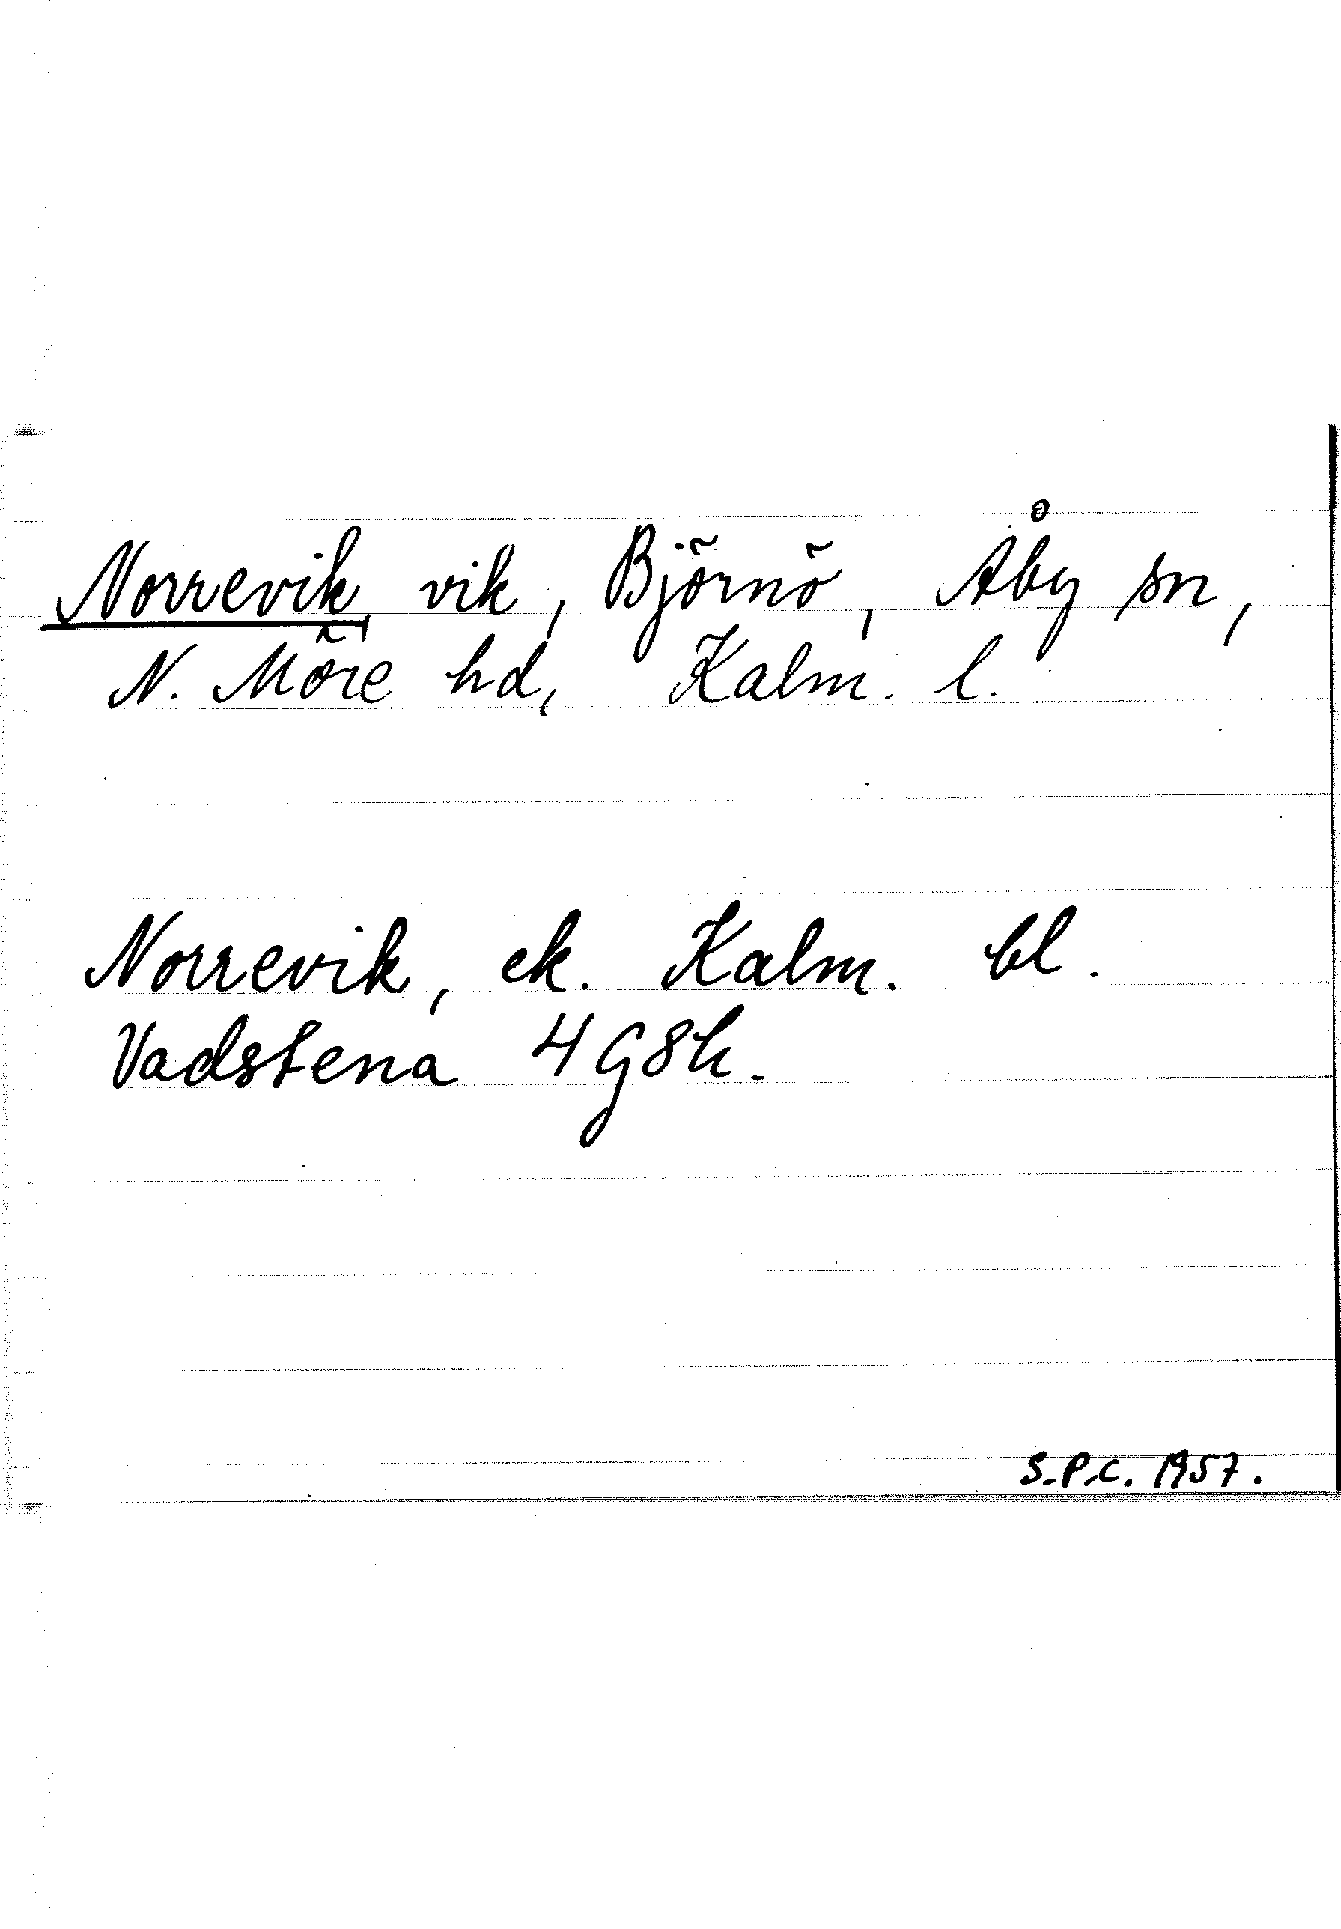 Norrevik, vik, Björnö, Åby sn,
N. Möre hd, Kalm. l.
Norrevik, ek. Kalm. bl.
Vadstena 4 G8h.
S.P.C. 1957.